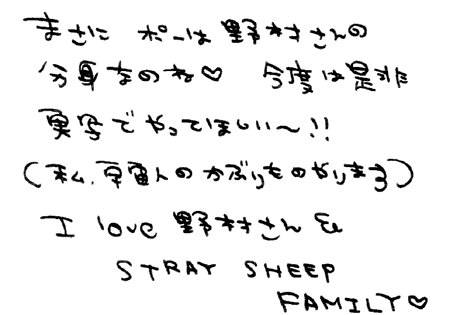 まさに ポーは野村さんの
分身なのね♡ 今度は是非
実写でやってほしい〜!!
(私、宇宙人のかぶりものやります)
I love 野村さん &
STRAY SHEEP
FAMILY♡